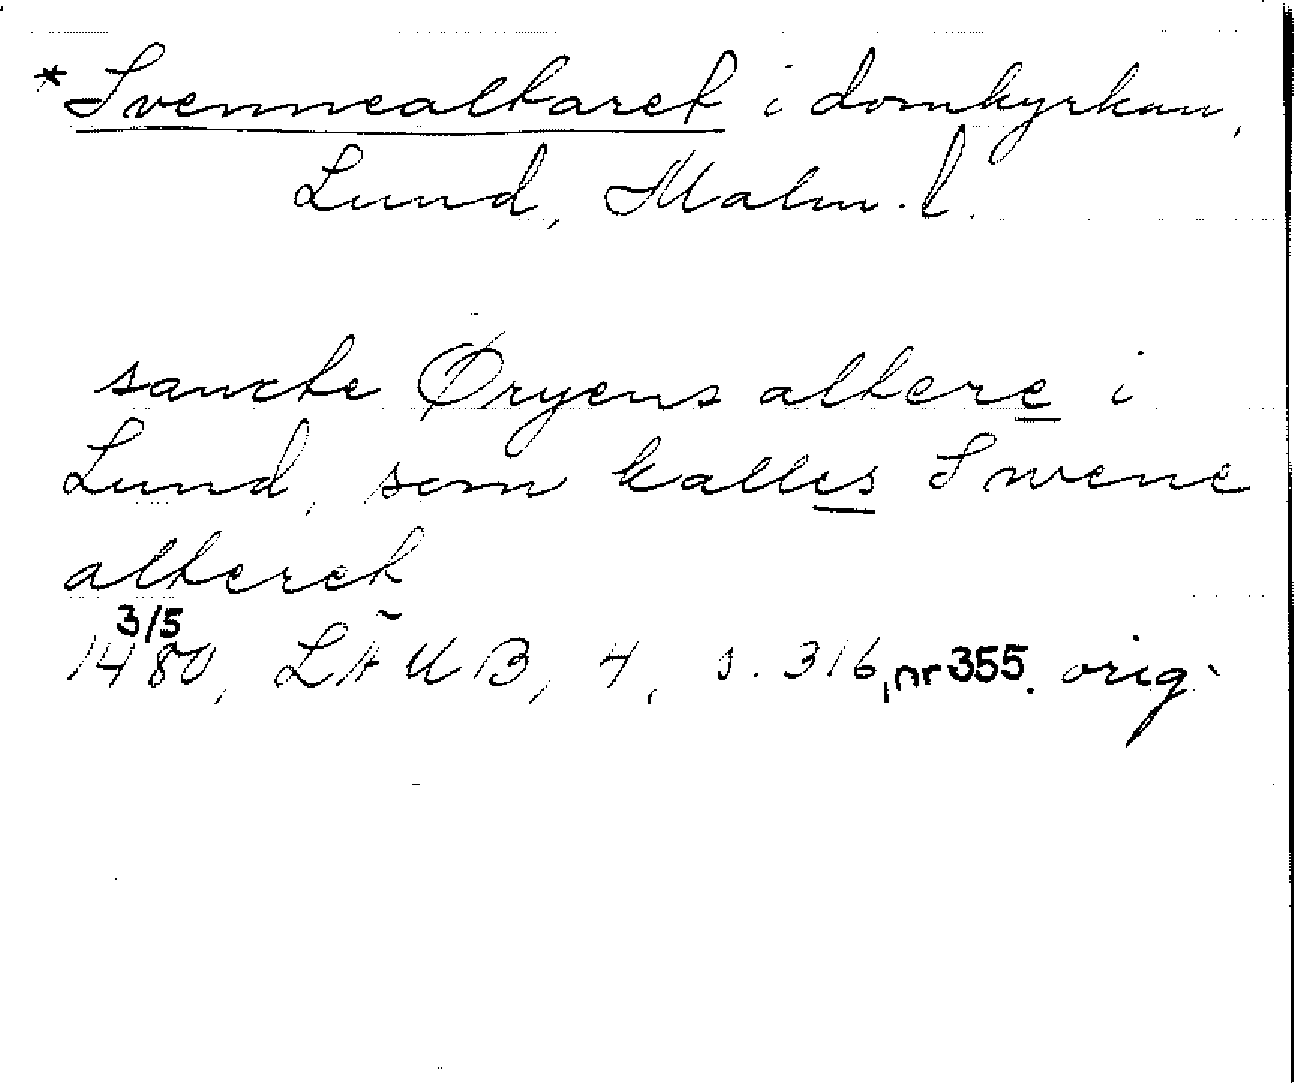 *Svennealtaret i domkyrkan,
Lund, Malm. l.
sancte Øryens altere i
Lund, som kalles Swene
alteret
1480 3/5, LÄUB, 4, s. 316, nr 355. orig.